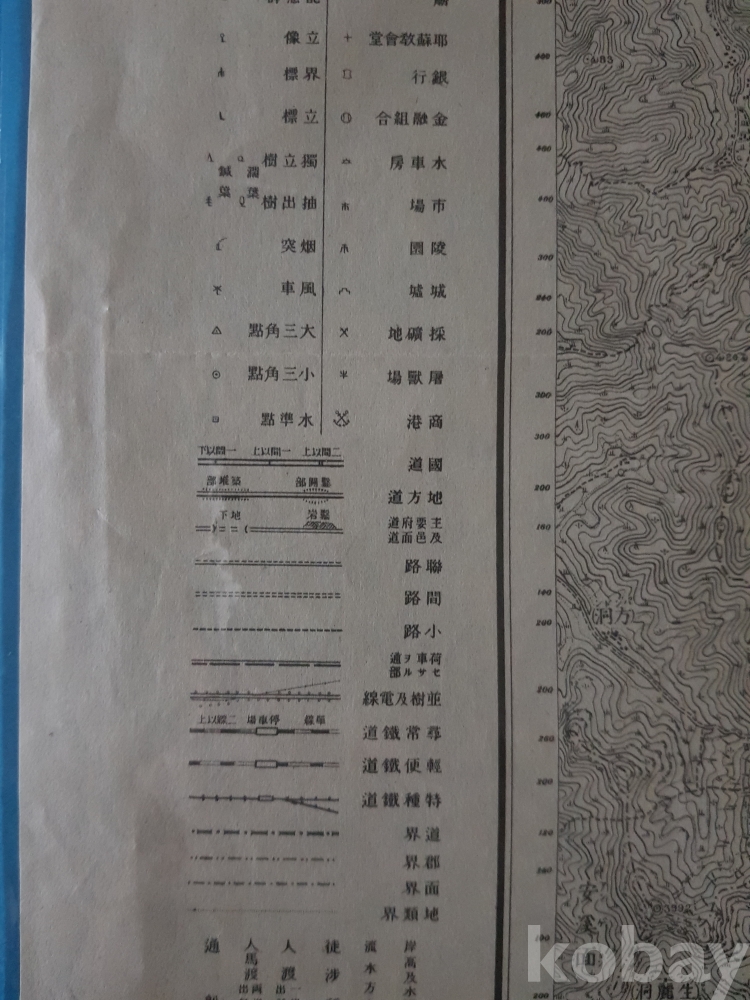 像立
堂會敎蘇耶
標界
行銀
標立
合組融金
樹立獨
房車水
鍼葉
濶葉
樹出抽
場市
突烟
園陵
車風
墟城
點角三大
地礦採
點角三小
場獸屠
點準水
港商
下以間一
上以間一
上以間二
道國
部堤築
部開鑿
道方地
下地
岩鑿
道府要主
道面邑及
路聯
路間
路小
通ヲ車荷
部ルサセ
線電及樹並
上以線二
場車停
線單
道鐵常尋
道鐵便輕
道鐵種特
界道
界郡
界面
界類地
通
人馬渡
人渡
徒涉
流水方
岸高及水
400
400
400
400
300
200
300
300
200
200
200
200
洞方
洞麗生
kobay